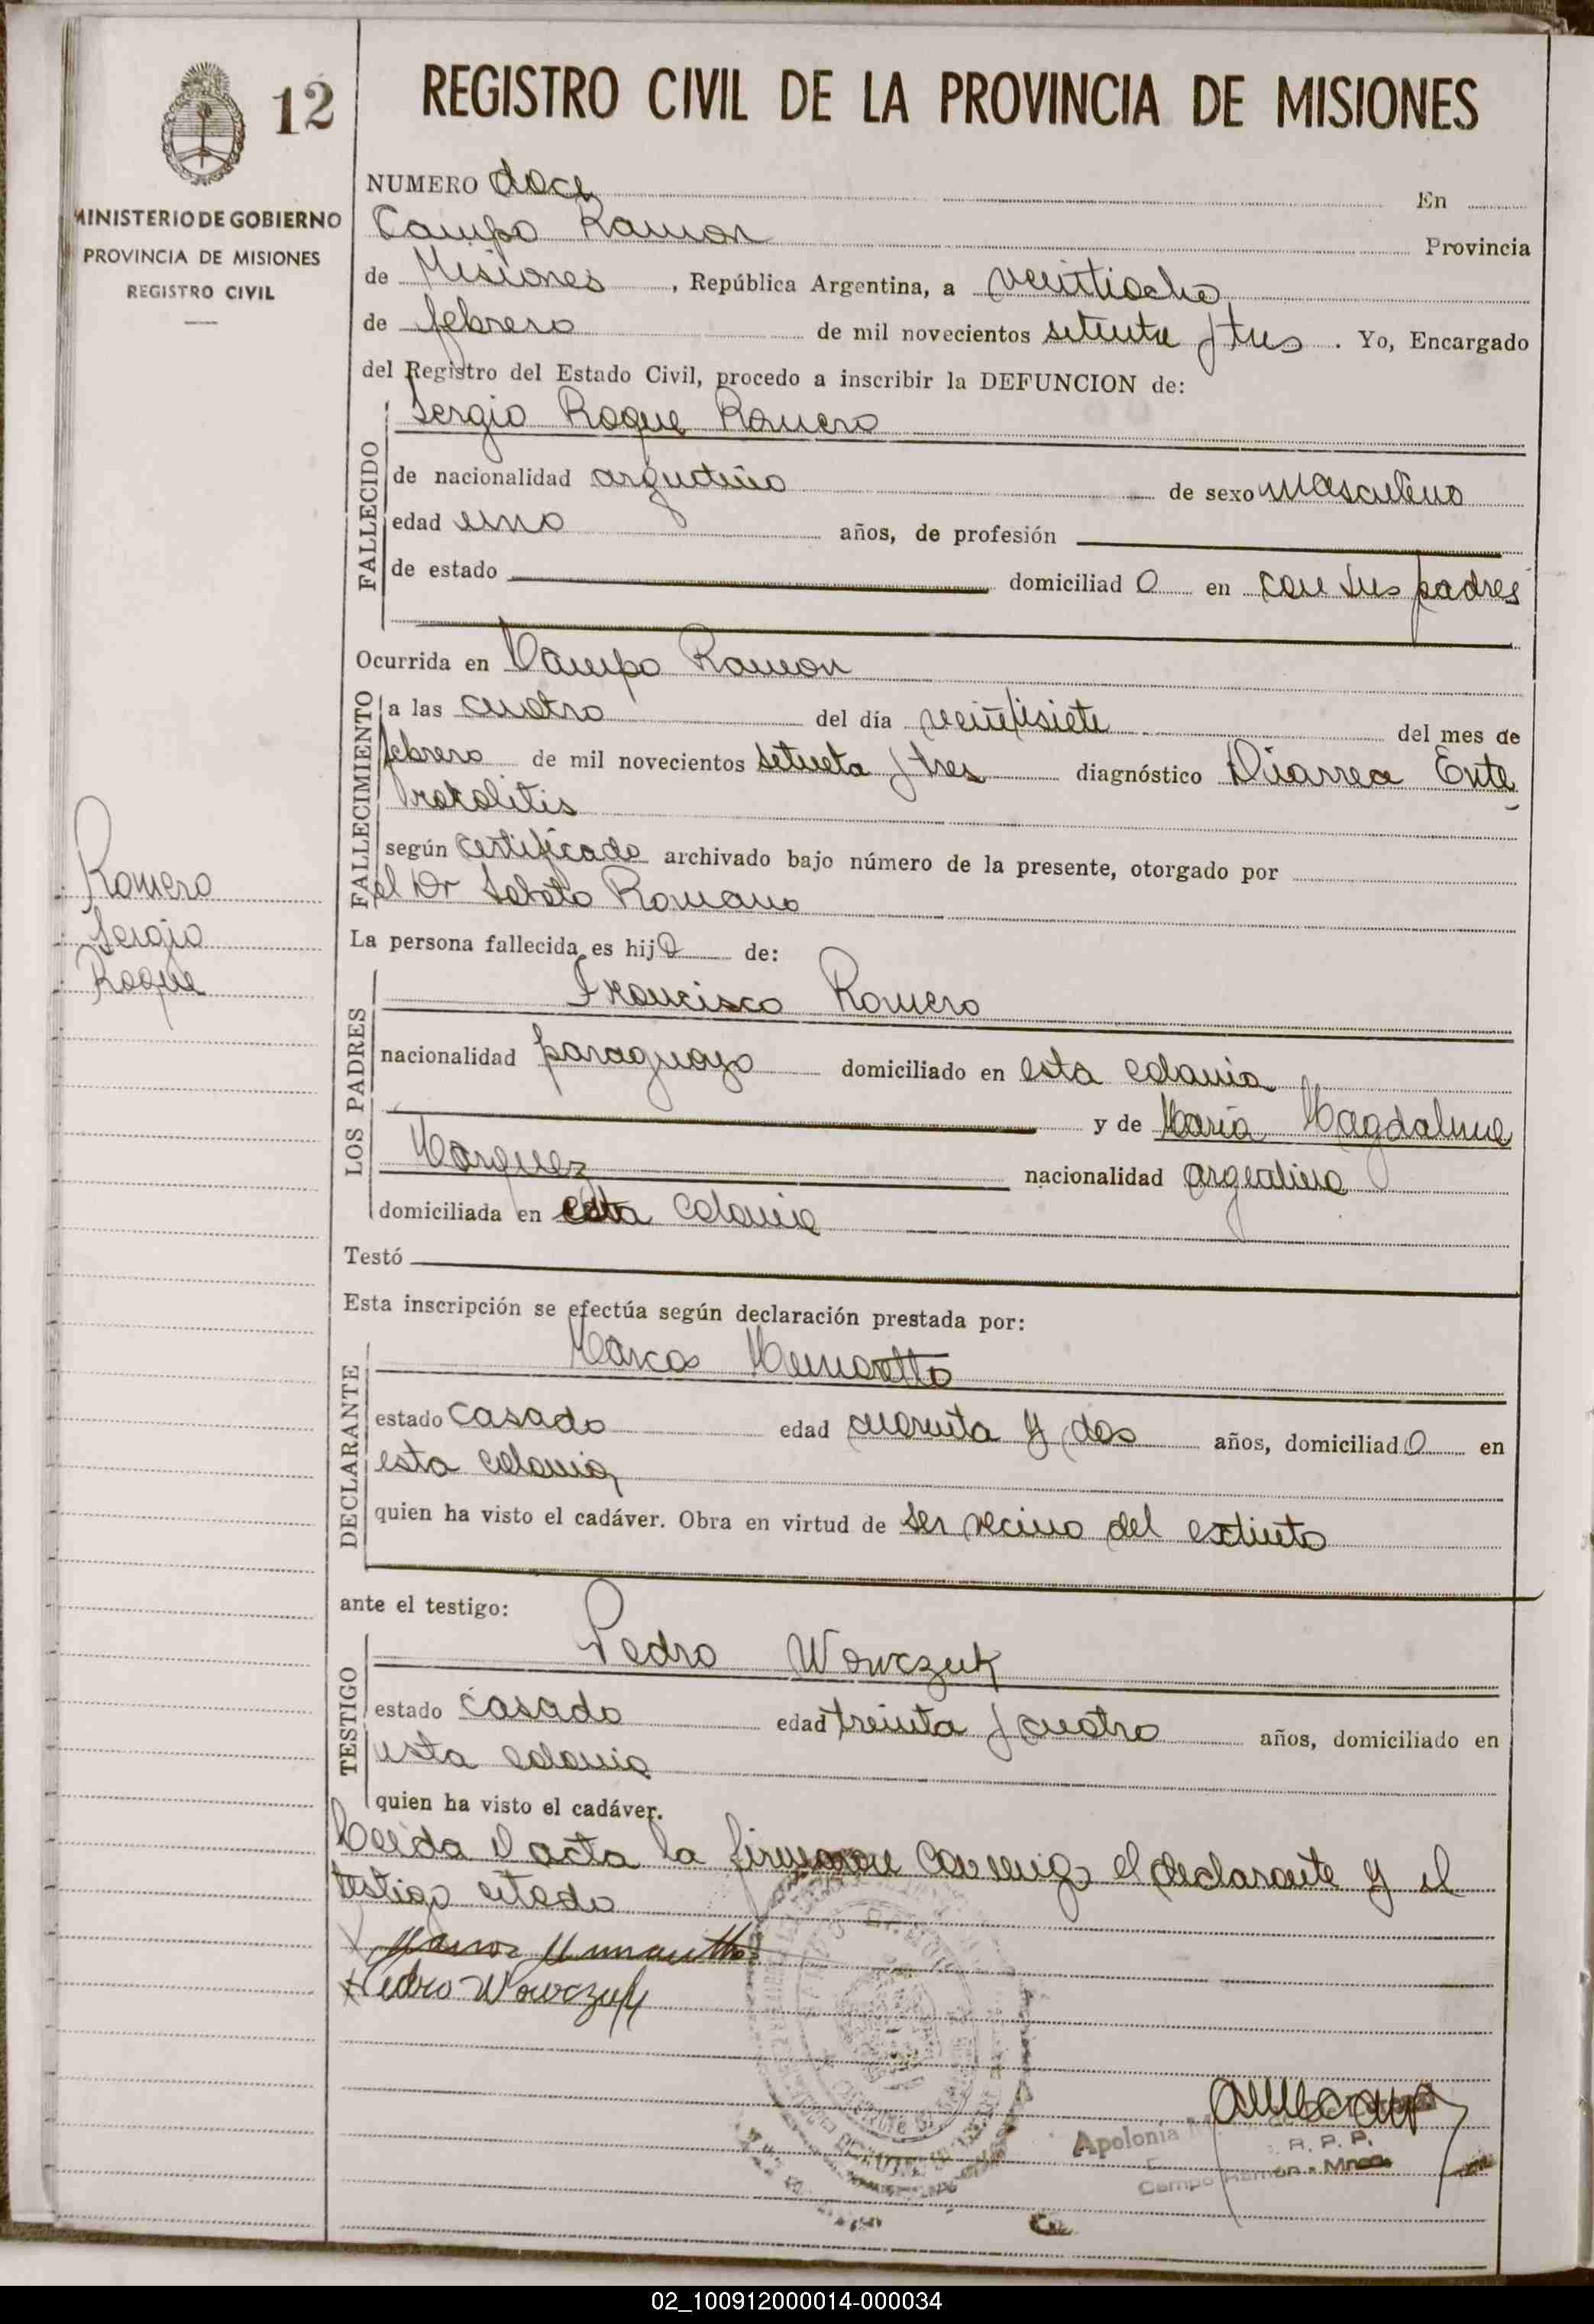 12
REGISTRO CIVIL DE LA PROVINCIA DE MISIONES
MINISTERIO DE GOBIERNO
PROVINCIA DE MISIONES
REGISTRO CIVIL
NUMERO doce En
Campo Ramon Provincia
de Misiones, República Argentina, a veintiocho
de febrero de mil novecientos setenta y tres. Yo, Encargado
del Registro del Estado Civil, procedo a inscribir la DEFUNCION de:
FALLECIDO
Sergio Roque Romero
de nacionalidad argentino de sexo masculino
edad uno años, de profesión
de estado domiciliado en con sus padres
Ocurrida en Campo Ramon
FALLECIMIENTO
a las cuatro del día veintisiete del mes de
febrero de mil novecientos setenta y tres diagnóstico Diarrea Ente
rocolitis
según certificado archivado bajo número de la presente, otorgado por
el Dr Romano
Romero
Sergio
Roque
La persona fallecida es hijo de:
LOS PADRES
Francisco Romero
nacionalidad paraguayo domiciliado en esta colonia
y de María Magdalena
Marquez nacionalidad argentina
domiciliada en esta colonia
Testó
Esta inscripción se efectúa según declaración prestada por:
DECLARANTE
Marcos
estado casado edad cuarenta y dos años, domiciliado en
esta colonia
quien ha visto el cadáver. Obra en virtud de ser vecino del extinto
ante el testigo:
TESTIGO
Pedro Wowczuk
estado casado edad treinta y cuatro años, domiciliado en
esta colonia
quien ha visto el cadáver.
Leida el acta la firmaron conmigo el declarante y el
testigo citado
Pedro Wowczuk
Apolonia
R. P. P.
Campo Ramón - Mnes.
02_100912000014-000034